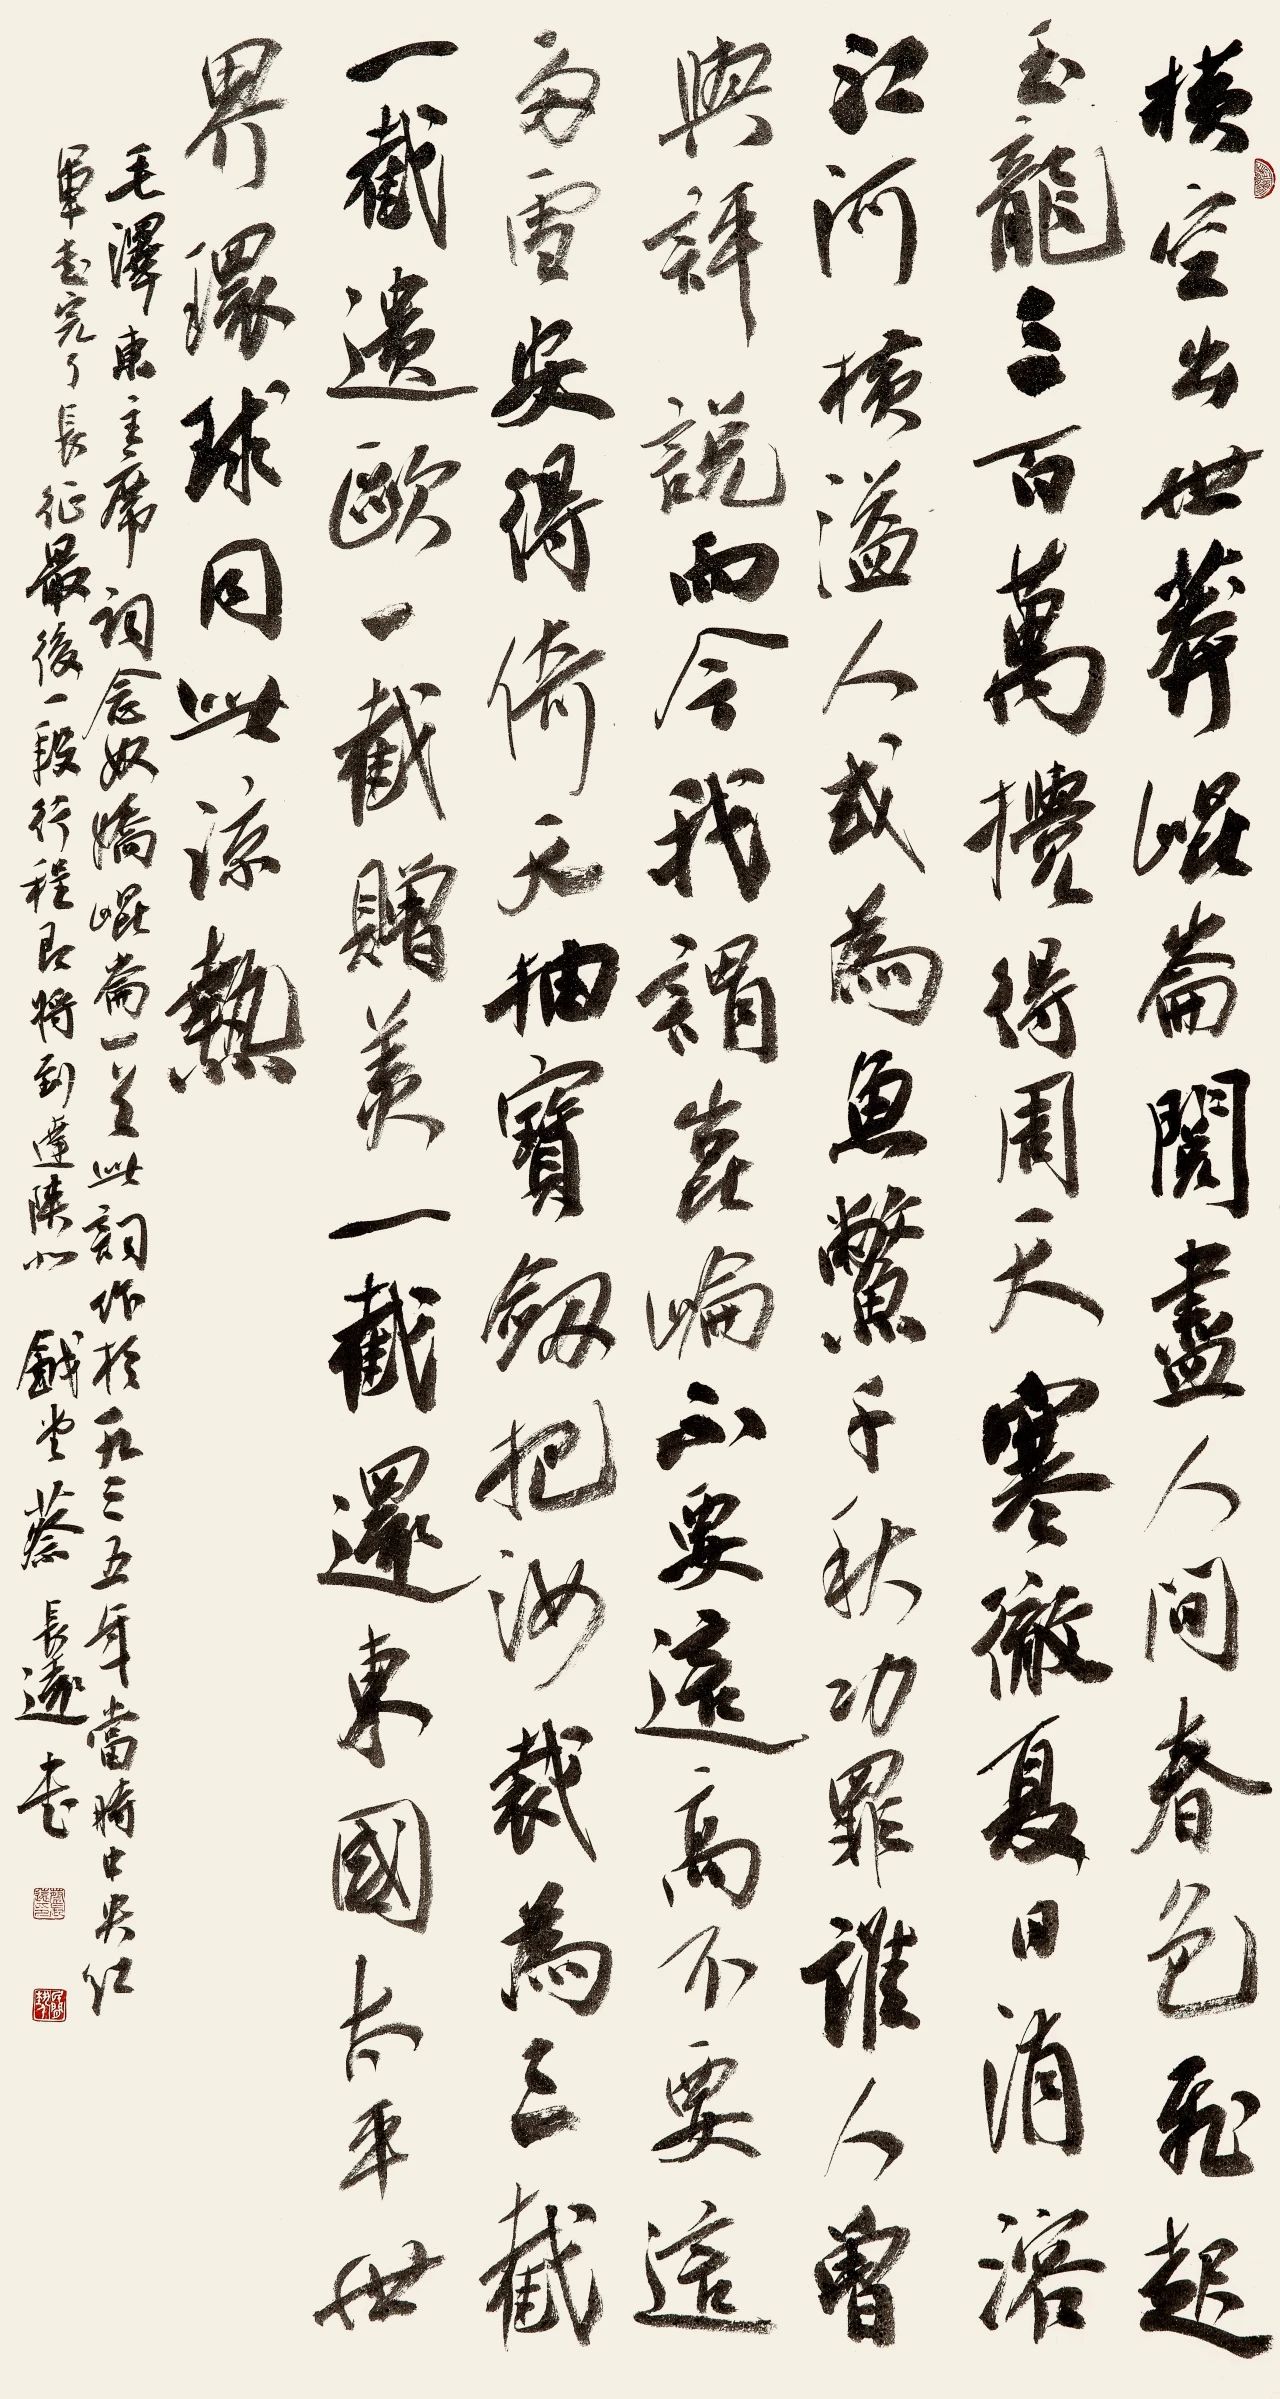 橫空出世莽崐崙閱盡人間春色飛起
玉龍三百萬攪得周天寒徹夏日消溶
江河橫溢人或為魚鱉千秋功罪誰人曾
與評說而今我謂崑崘不要這高不要這
多雪安得倚天抽寶劔把汝裁為三截
一截遺歐一截贈美一截還東國太平世
界環球同此涼熱
毛澤東主席詞念奴嬌崐崙一首此詞作於一九三五年當時中央紅
軍走完了長征最後一段行程即將到達陝北 鉞堂蔡長遠書